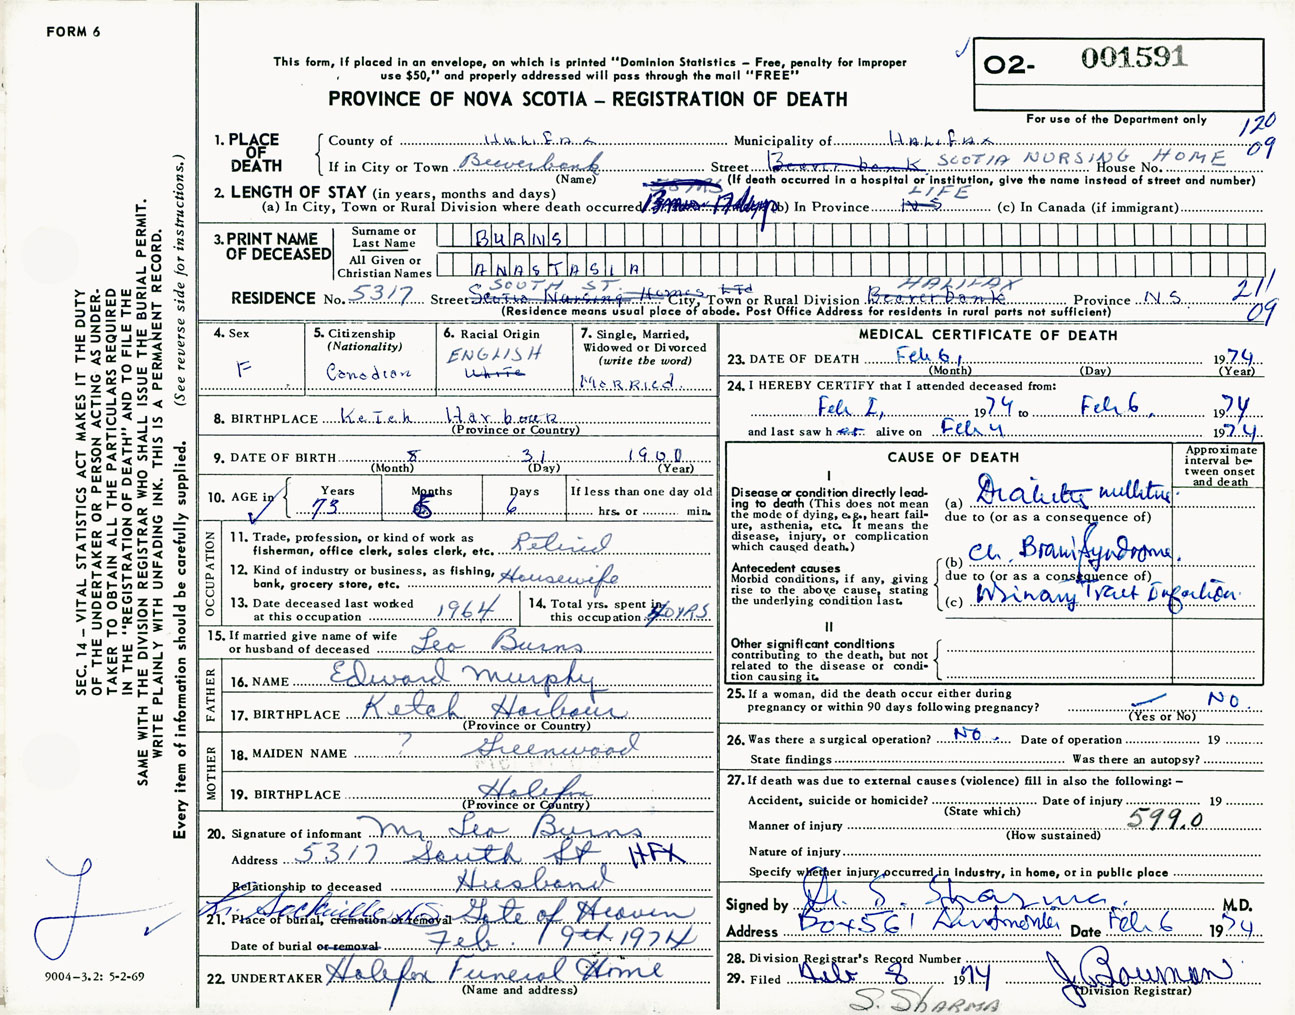 FORM 6
This form, if placed in an envelope, on which is printed "Dominion Statistics – Free, penalty for improper
use $50," and properly addressed will pass through the mail "FREE"
PROVINCE OF NOVA SCOTIA – REGISTRATION OF DEATH
02- 001591
For use of the Department only
120
09
SEC. 14 – VITAL STATISTICS ACT MAKES IT THE DUTY
OF THE UNDERTAKER OR PERSON ACTING AS UNDER-
TAKER TO OBTAIN ALL THE PARTICULARS REQUIRED
IN THE "REGISTRATION OF DEATH" AND TO FILE THE
SAME WITH THE DIVISION REGISTRAR WHO SHALL ISSUE THE BURIAL PERMIT.
WRITE PLAINLY WITH UNFADING INK. THIS IS A PERMANENT RECORD.
Every item of information should be carefully supplied. (See reverse side for instructions.)
1. PLACE OF DEATH
County of HALIFAX Municipality of HALIFAX
If in City or Town Beaverbank Street Beaver bank SCOTIA NURSING HOME House No.
(Name) (If death occurred in a hospital or institution, give the name instead of street and number)
2. LENGTH OF STAY (in years, months and days) LIFE
(a) In City, Town or Rural Division where death occurred (b) In Province N S (c) In Canada (if immigrant)
3. PRINT NAME OF DECEASED
Surname or Last Name BURNS
All Given or Christian Names ANASTASIA
SOUTH ST. HALIFAX 211
RESIDENCE No. 5317 Street Scotia Nursing Homes Ltd City, Town or Rural Division Beaverbank Province N.S.
(Residence means usual place of abode. Post Office Address for residents in rural parts not sufficient) 09
4. Sex
F
5. Citizenship
(Nationality)
Canadian
6. Racial Origin
ENGLISH
White
7. Single, Married,
Widowed or Divorced
(write the word)
Married
8. BIRTHPLACE Ketch Harbour
(Province or Country)
9. DATE OF BIRTH 8 31 1900
(Month) (Day) (Year)
10. AGE in Years Months Days If less than one day old
73 6 hrs. or min.
OCCUPATION
11. Trade, profession, or kind of work as
fisherman, office clerk, sales clerk, etc. Retired
12. Kind of industry or business, as fishing,
bank, grocery store, etc. Housewife
13. Date deceased last worked
at this occupation 1964
14. Total yrs. spent in
this occupation 40 YRS
15. If married give name of wife
or husband of deceased Leo Burns
FATHER
16. NAME Edward Murphy
17. BIRTHPLACE Ketch Harbour
(Province or Country)
MOTHER
18. MAIDEN NAME ? Greenwood
19. BIRTHPLACE Halifax
(Province or Country)
20. Signature of informant Mr Leo Burns
Address 5317 South St HFX
Relationship to deceased Husband
21. Place of burial, cremation or removal Lr. Sackville NS Gate of Heaven
Date of burial or removal Feb. 9th 1974
22. UNDERTAKER Halifax Funeral Home
(Name and address)
MEDICAL CERTIFICATE OF DEATH
23. DATE OF DEATH Feb 6, 1974
(Month) (Day) (Year)
24. I HEREBY CERTIFY that I attended deceased from:
Feb 1, 1974 to Feb 6. 1974
and last saw h alive on Feb 4 1974
CAUSE OF DEATH
Approximate
interval be-
tween onset
and death
I
Disease or condition directly lead-
ing to death (This does not mean
the mode of dying, e.g., heart fail-
ure, asthenia, etc. It means the
disease, injury, or complication
which caused death.)
(a) Diabetes mellitus
due to (or as a consequence of)
(b) Ch. Brain Syndrome.
Antecedent causes
Morbid conditions, if any, giving
rise to the above cause, stating
the underlying condition last.
due to (or as a consequence of)
(c) Urinary Tract Infection.
II
Other significant conditions
contributing to the death, but not
related to the disease or condi-
tion causing it.
25. If a woman, did the death occur either during
pregnancy or within 90 days following pregnancy? No.
(Yes or No)
26. Was there a surgical operation? No. Date of operation 19
State findings Was there an autopsy?
27. If death was due to external causes (violence) fill in also the following: –
Accident, suicide or homicide? Date of injury 19
(State which)
Manner of injury 599.0
(How sustained)
Nature of injury
Specify whether injury occurred in industry, in home, or in public place
Signed by Dr. S. Sharma. M.D.
Address Box 561 Dartmouth Date Feb 6 1974
28. Division Registrar's Record Number
29. Filed Feb 8 1974 J Bowman
(Division Registrar)
S. SHARMA
9004–3.2: 5-2-69